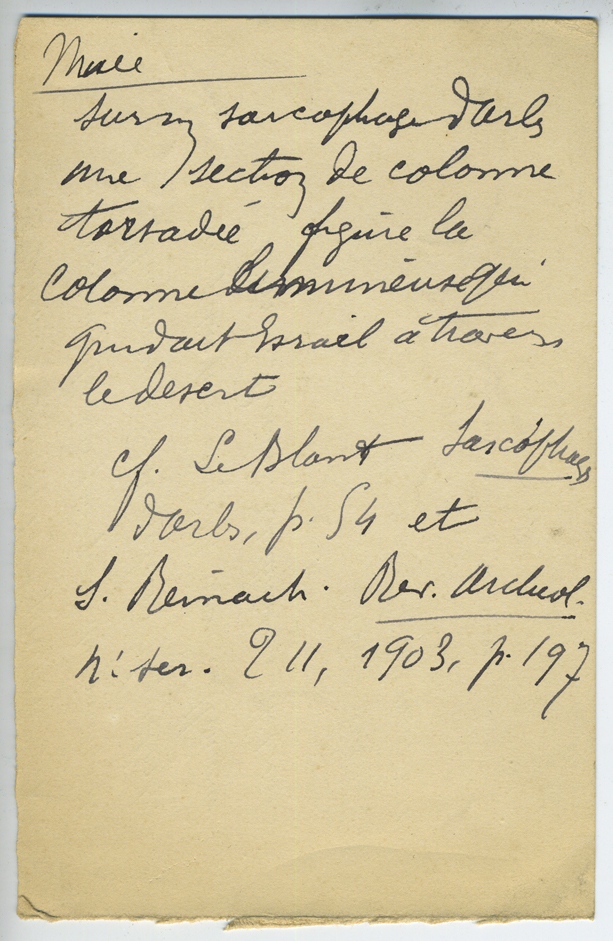 sur un sarcophage d'Arles
une section de colonne
torsadée figure la
colonne lumineuse qui
guidait Israel à travers
le desert
cf. Le Blant Sarcophages
d'Arles, p. 54 et
S. Reinach. Rev. Archéol.
n. ser. T II, 1903, p. 197